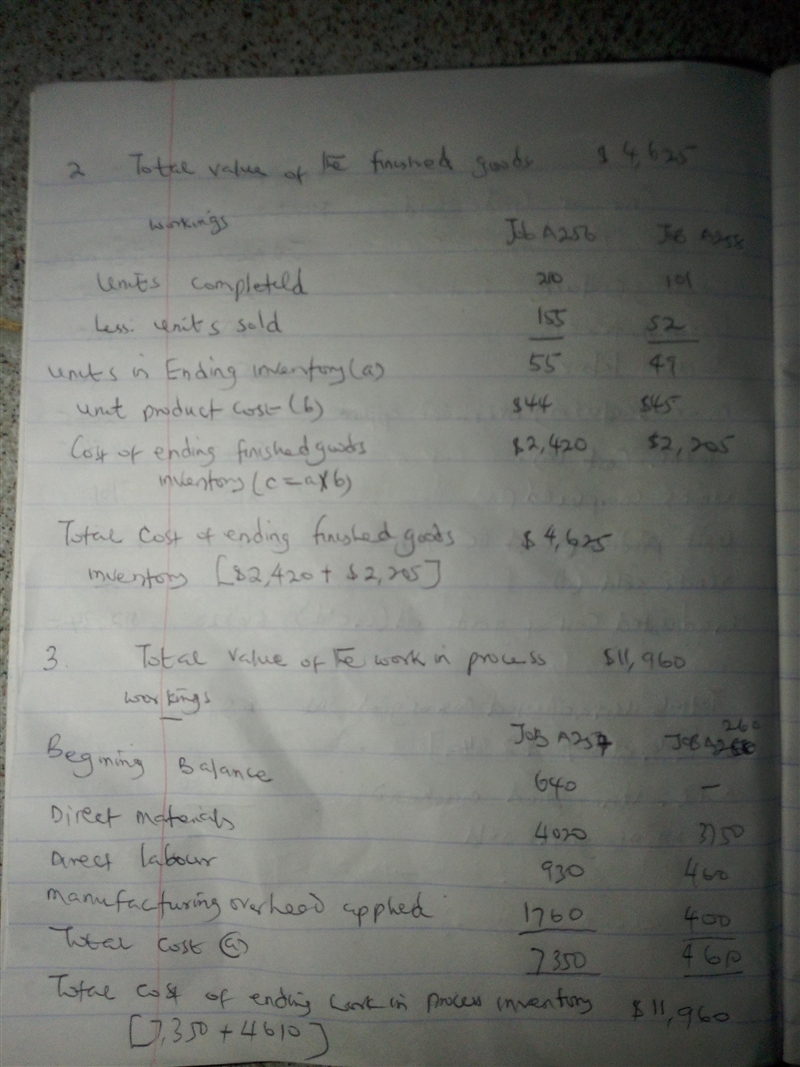 2 Total value of the finished goods $ 4,625
workings Job A256 Job A258
Units completed 210 101
Less. Units sold 155 52
Units in Ending inventory (a) 55 49
Unit product cost (b) $44 $45
Cost of ending finished goods $2,420 $2,205
inventory (c = a x b)
Total Cost of ending finished goods $ 4,625
inventory [$2,420 + $2,205]
3. Total value of the work in process $11,960
workings
Job A257 Job A 260
Begining Balance 640 –
Direct materials 4020 3750
Direct labour 930 460
Manufacturing overhead applied 1760 400
Total cost (a) 7350 4610
Total cost of ending work in process inventory $ 11,960
[7,350 + 4610]